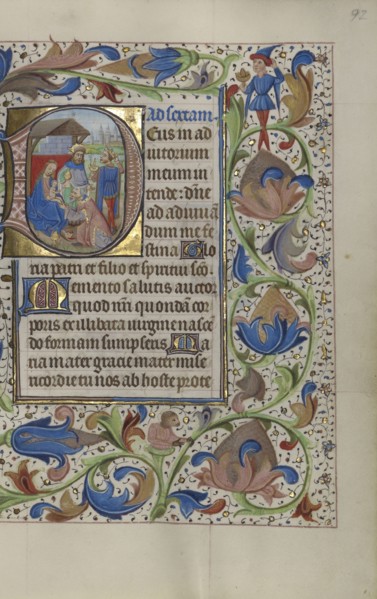 92
ad sextam
Eus in ad
iutorium
meum in
tende: dñe
ad adiuuā
dum me fe
stina Glo
ria patri et filio et spiritui sc̄o
Memento salutis auctor
quod nr̄i quondā cor
poris ex illibata uirgine nascē
do formam sumpseris Ma
ria mater gracie mater mise
ricordie tu nos ab hoste prote